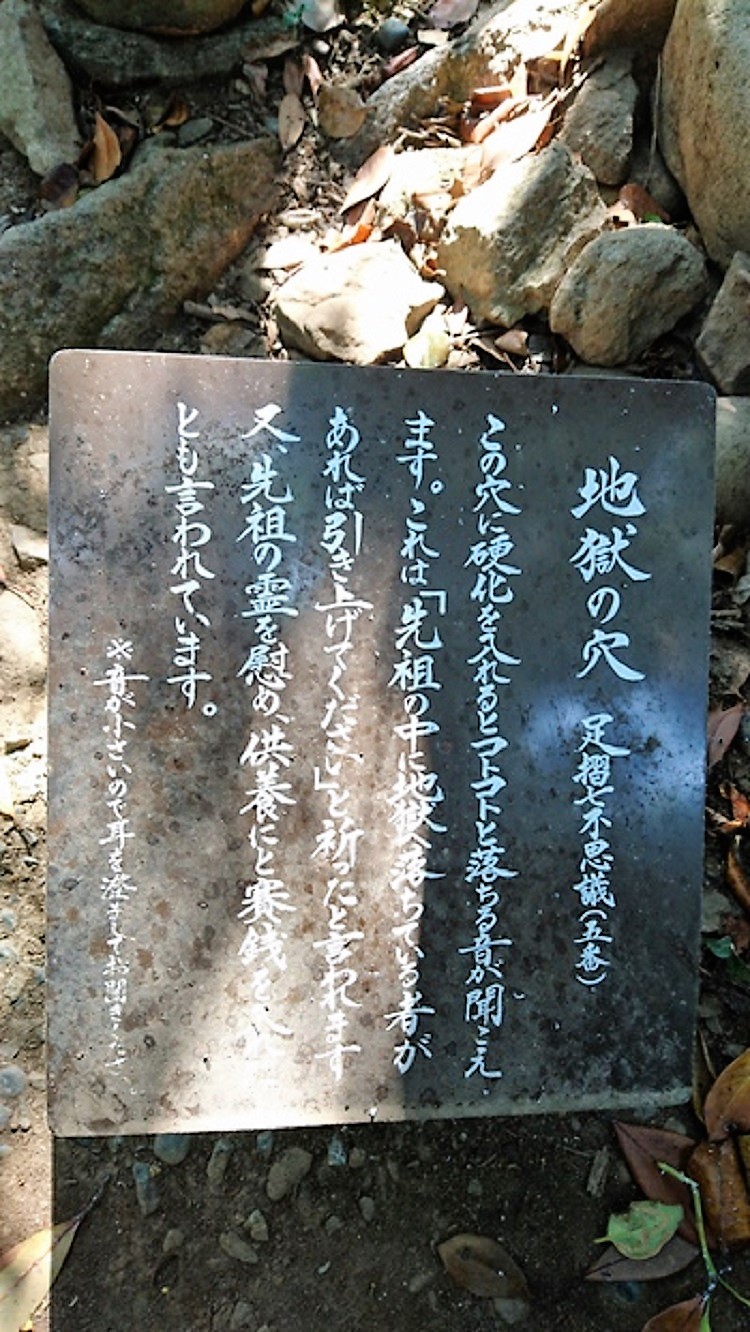 地獄の穴 足摺七不思議(五番)
この穴に硬化を入れるとコトコトと落ちる音が聞こえ
ます。これは「先祖の中に地獄へ落ちている者が
あれば引き上げてください」と祈ったと言われます
又、先祖の霊を慰め、供養にと賽銭を入れ
とも言われています。
※音が小さいので耳を澄ましてお聞きください